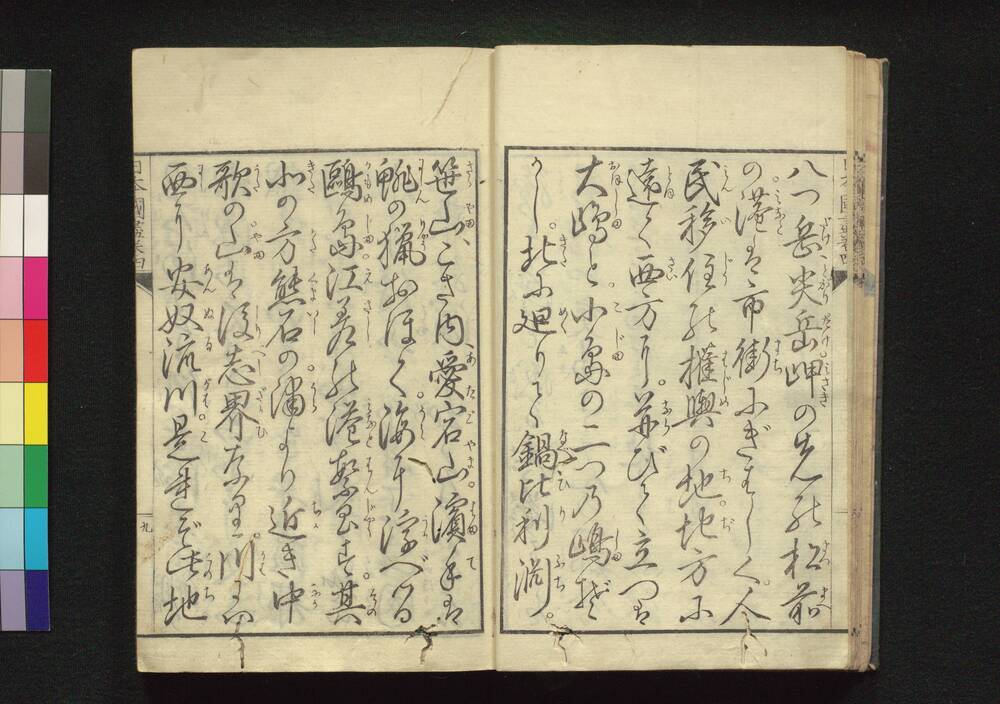 八つ岳尖岳岬の先能松前
の港は市街にぎはしく。人
民移住能権輿の地。地方に
遠く西方に。並びて立つは
大嶋と小島の二つ乃嶋ぞ
かし。北に廻りて鍋比利渕。
笹山、こき内、愛宕山。濱手は
鯡の猟おほく。海中に浮べる
鷗島江差能港繁昌す。其
北の方熊石の浦より近き中
歌の山は後志界なり。川には
西に安奴流川是ぞ此地
日本國盡巻四
九